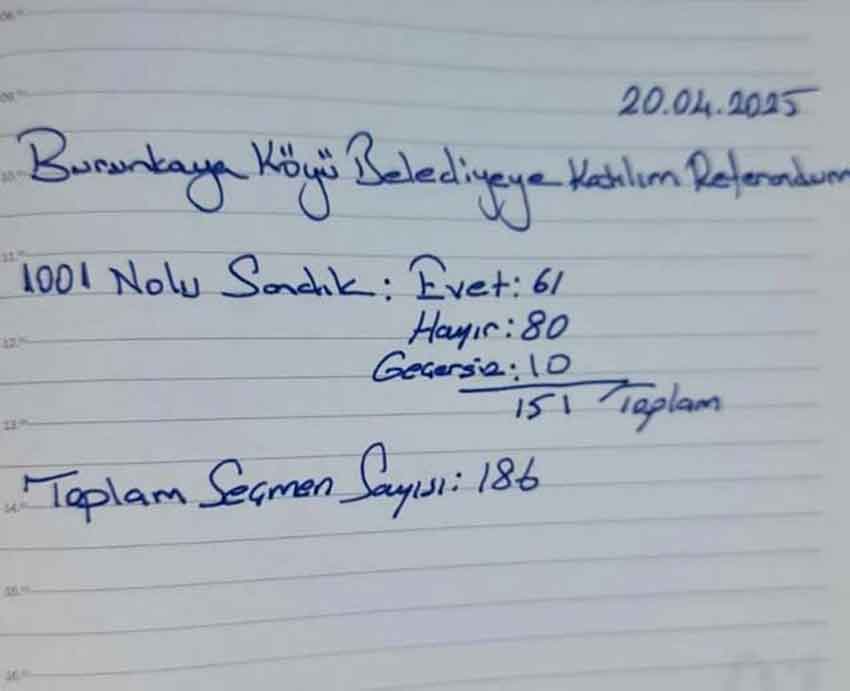 20.04.2025
Burunkaya Köyü Belediyeye Katılım Referandum
1001 Nolu Sandık: Evet: 61
Hayır: 80
Geçersiz: 10
151 Toplam
Toplam Seçmen Sayısı: 186